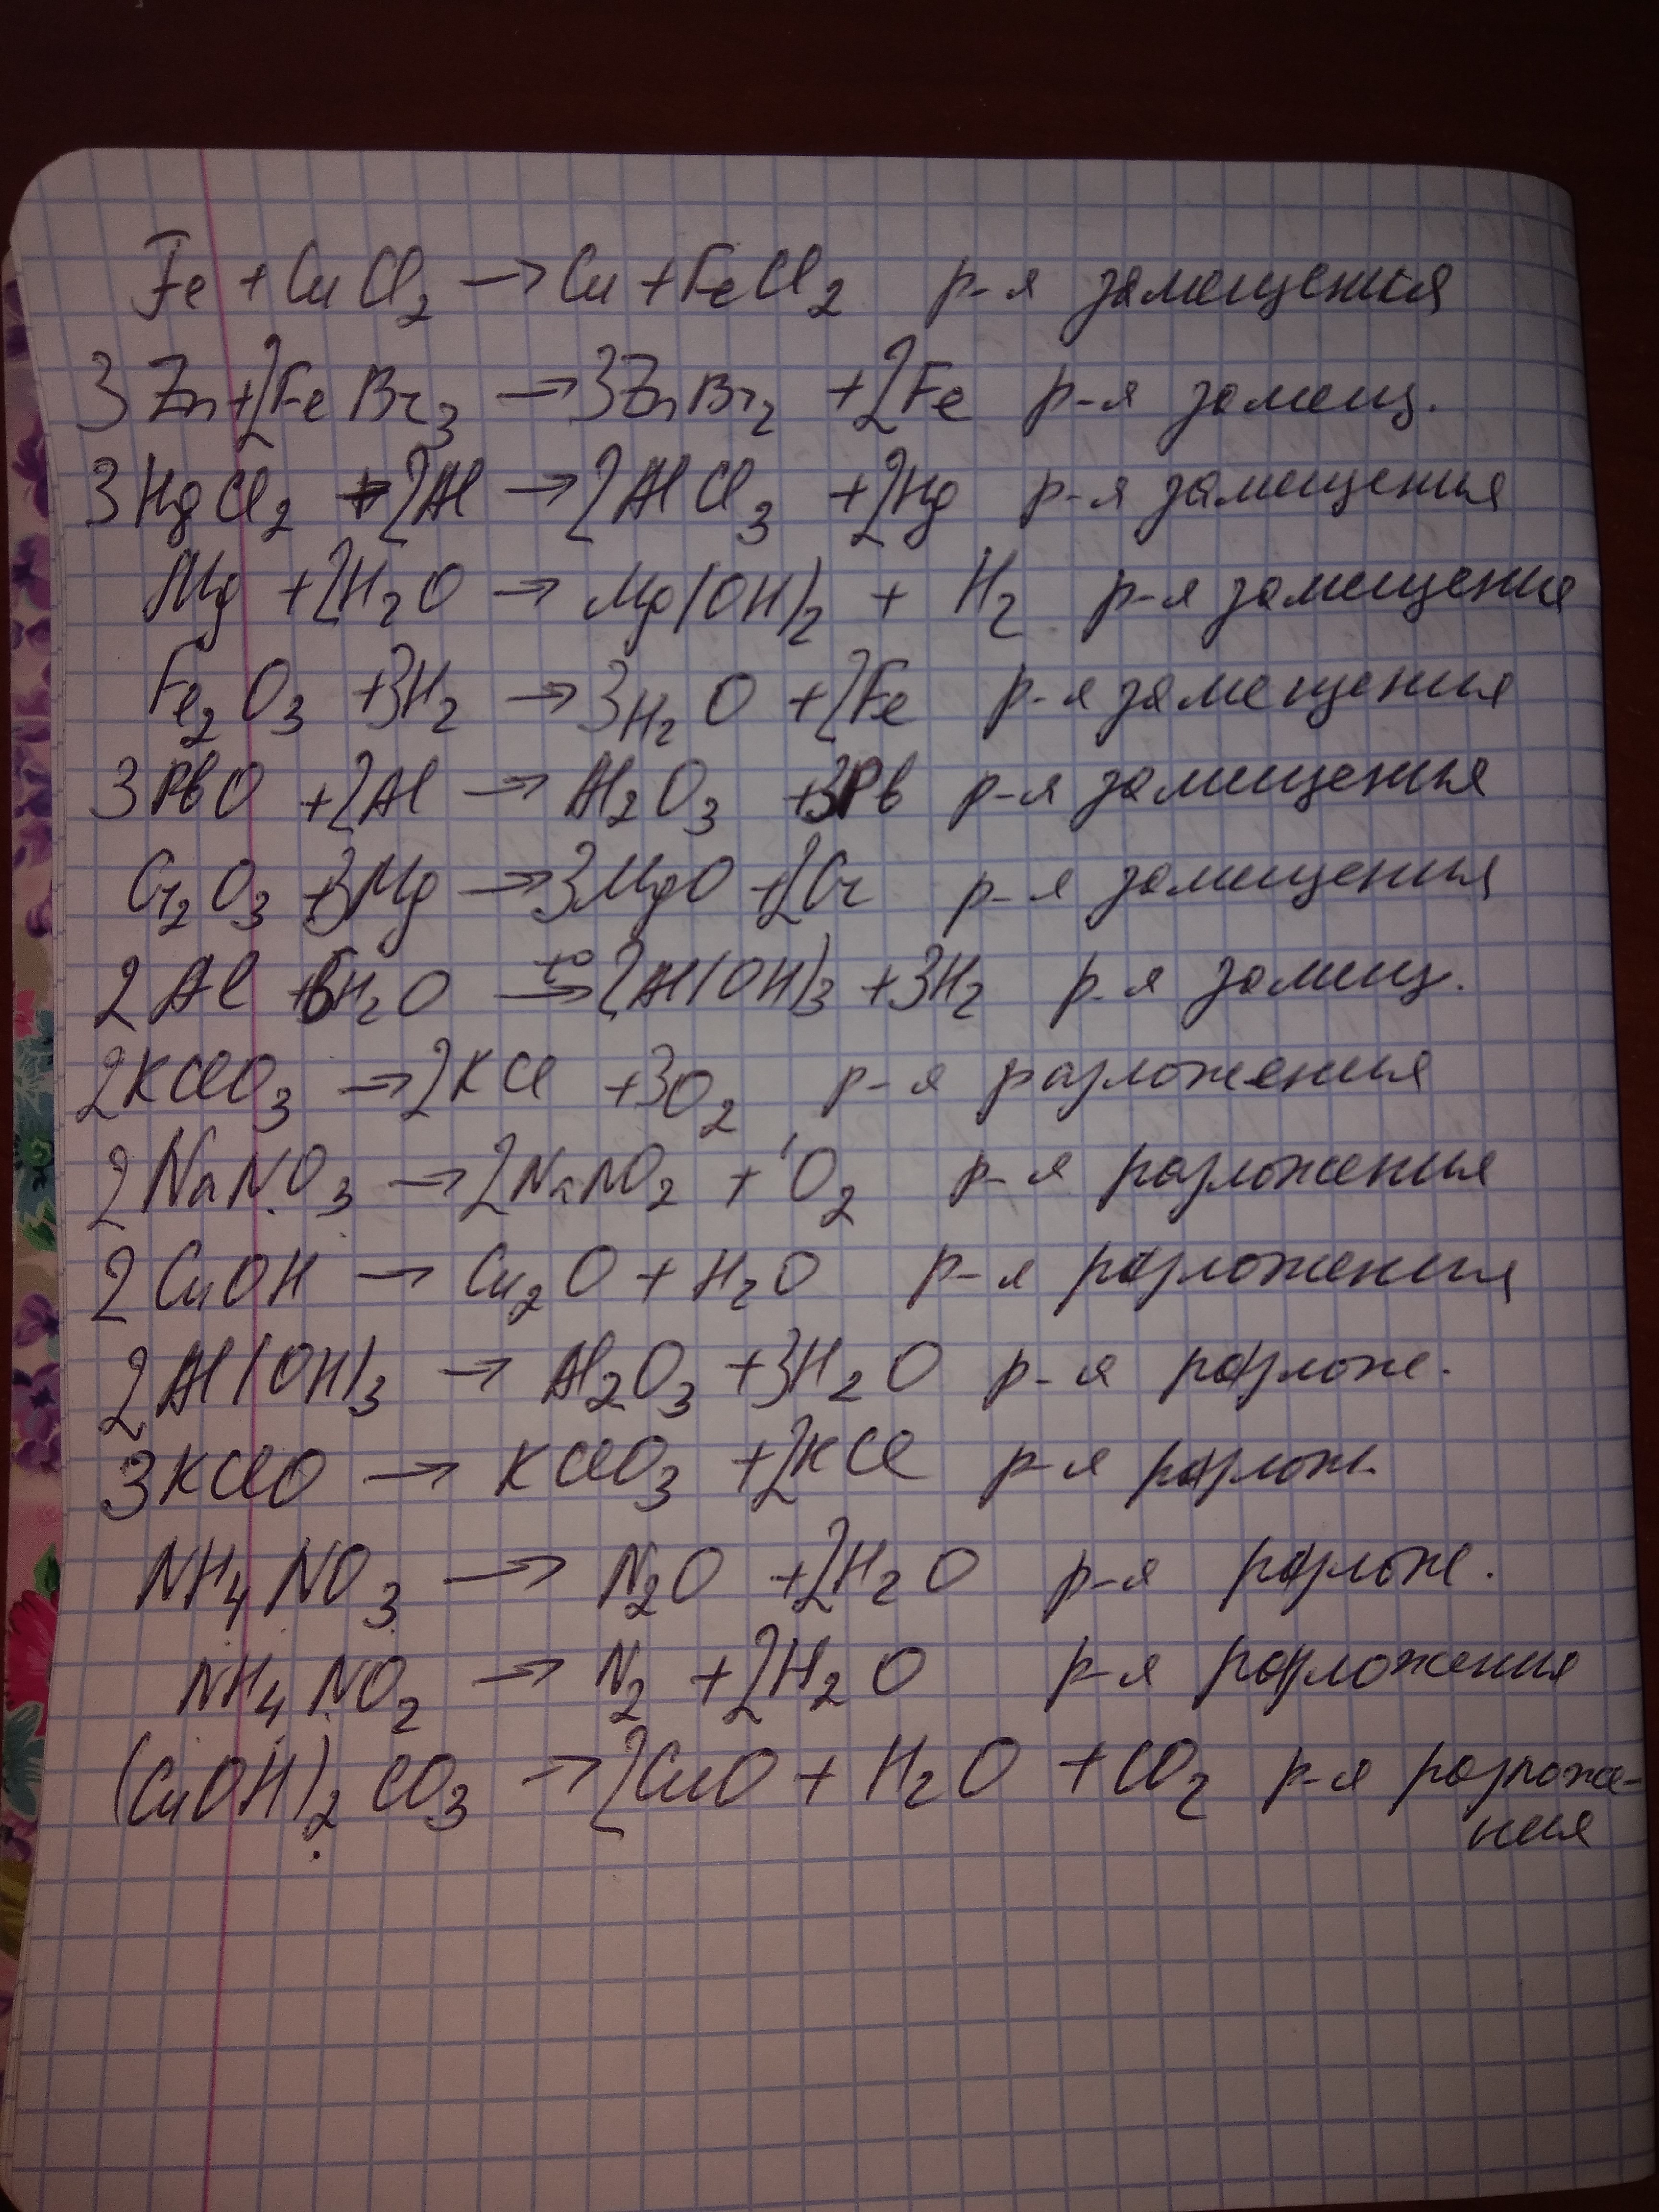 Fe + CuCl₂ → Cu + FeCl₂ р-я замещения
3Zn + 2FeBr₃ → 3ZnBr₂ + 2Fe р-я замещ.
3HgCl₂ + 2Al → 2AlCl₃ + 2Hg р-я замещения
Mg + 2H₂O → Mg(OH)₂ + H₂ р-я замещения
Fe₂O₃ + 3H₂ → 3H₂O + 2Fe р-я замещения
3PbO + 2Al → Al₂O₃ + 3Pb р-я замещения
Cr₂O₃ + 3Mg → 3MgO + 2Cr р-я замещения
2Al + 6H₂O t° → 2Al(OH)₃ + 3H₂ р-я замещ.
2KClO₃ → 2KCl + 3O₂ р-я разложения
2NaNO₃ → 2NaNO₂ + O₂ р-я разложения
2CuOH → Cu₂O + H₂O р-я разложения
2Al(OH)₃ → Al₂O₃ + 3H₂O р-я разлож.
3KClO → KClO₃ + 2KCl р-я разлож.
NH₄NO₃ → N₂O + 2H₂O р-я разлож.
NH₄NO₂ → N₂ + 2H₂O р-я разложения
(CuOH)₂CO₃ → 2CuO + H₂O + CO₂ р-я разложе-
ния